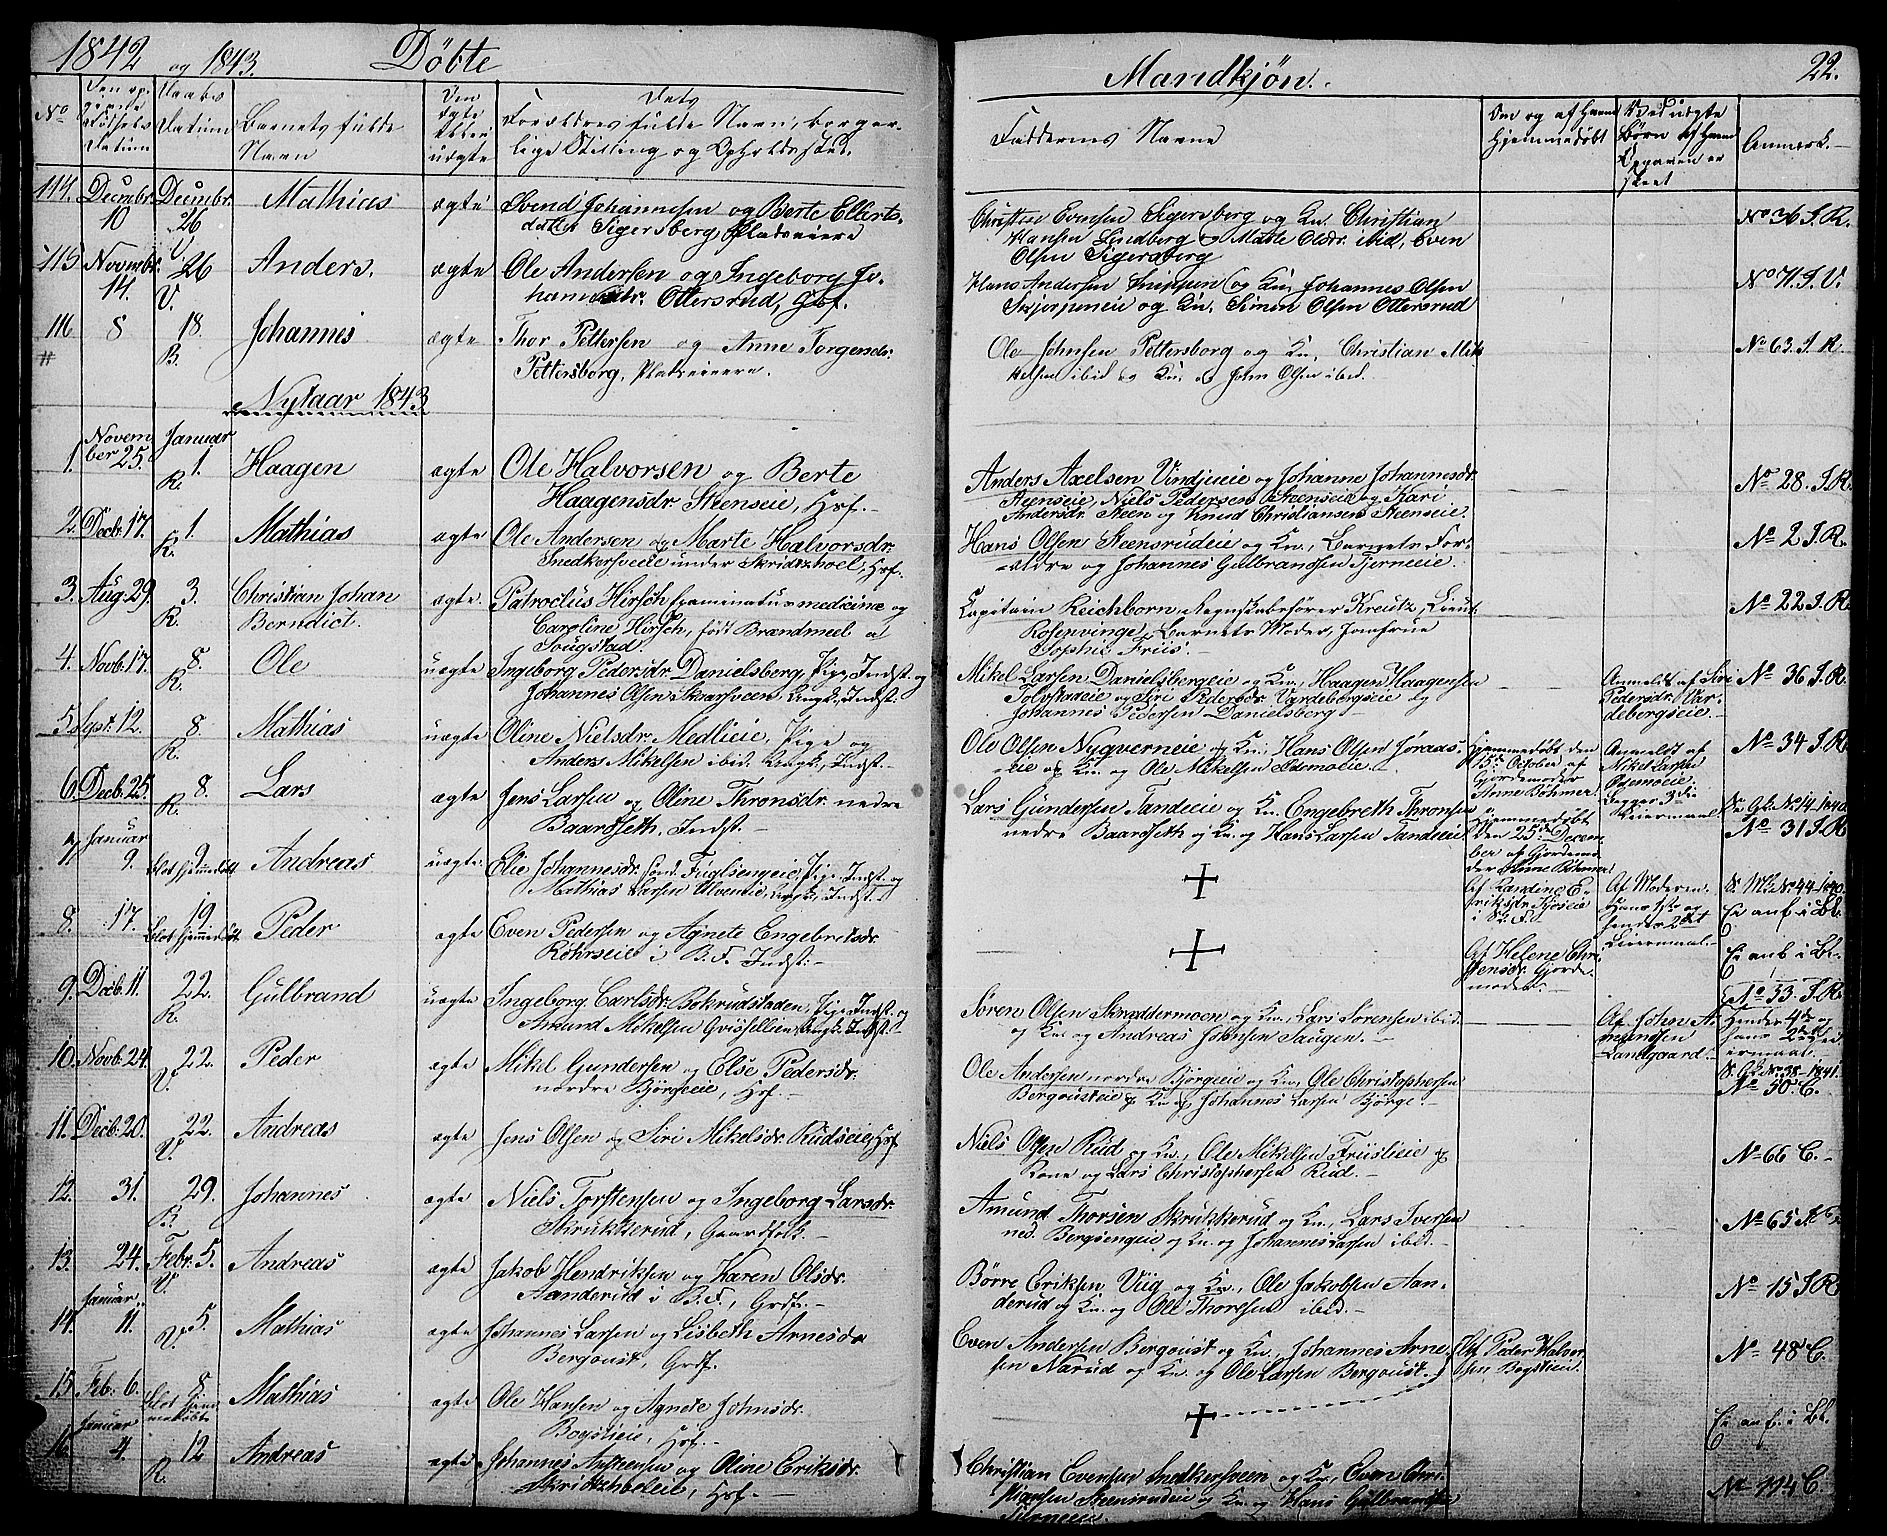 1842 og 1843. Döbte
Mandkjön. 22.
No
Datum
Barnets fulde
Navn
Om
ægte
eller
uægte
Forældres fulde Navn, borger-
lige Stilling og Opholdssted.
Faddernes Navne
Om og af Hvem
Hjemmedöbt
Ved uægte
Börn af Hvem
Opgaven er
skeet
Anmærk.
114. Decembr. 10 Decembr. 26 V. Mathias ægte
Svend Johannesen og Berte Ellerts-
datter Sigersberg, Pladseiere
Christian
Hansen Lindberg og Mathe Olsdr. ibid, Even
Olsen Sigersberg
No 36 J. R.
115 Novembr. 14. 26 V. Anders. ægte
Ole Andersen og Ingeborg Jo-
hannesdr. Ottersrud, Gbf.
Hans Andersen og Kn. Johannes Olsen
og Kn. Simen Olsen Ottersrud
No 71. J. V.
116 8 18. B. Johannes ægte
Thor Pettersen og Anne Torgensdr.
Pettersborg, Pladseiere.
Ole Johnsen Pettersborg og Kn. Christian Mik-
kelsen ibid og Kn. og John Olsen ibid.
No 63. J. R.
Nytaar 1843
1. November 25. Januar 1. R. Haagen ægte
Ole Halvorsen og Berte
Haagensdr. Steenseie, Hsf.
Anders Axelsen Vindjueie og Johanne Johannesdr.
Steenseie, Niels Pedersen Steenseie og Kari
Andersdr. Steen og Knud Christiansen Steenseie.
No 28. J. R.
2. Decb. 17. 1. R. Mathias ægte
Ole Andersen og Marte Halvorsdr.
Snedkersveeie under Skridtshoel, Hsf.
Hans Olsen Steensrudeie og Kn., Barnets For-
ældre og Johannes Gulbrandsen Tjerneeie.
No 2 J. R.
3. Aug. 29. 3. R. Christian Johan
Berndict. ægte.
Patroclus Hirsch Examinatus medicinæ og
Caroline Hirsch, född Brandmeel a
Tougstad.
Capitain Reichborn Regnskabsförer Kreutz, Lieut.
Rosenvinge, Barnets Moder, Jomfrue
Sophie Friis.
No 22 J. R.
4. Novb. 17. 8. R. Ole uægte
Ingeborg Pedersdr. Danielsberg, Pige, Indst. og
Johannes Olsen Skaarsveen Ungk., Indst.
Mikel Larsen Danielsbergeie og Kn., Haagen Haagensen
og Siri Pedersdr. Vardebergseie og
Johannes Pedersen Danielsberg.
Anmeldt af Siri
Pedersdr. Var-
debergseie.
No 36 J. R.
5. Septr. 12. 8. R. Mathias uægte
Oline Nielsdr. Medlieie, Pige og
Anders Mikelsen ibid. Ungk., Indst.
Ole Olsen Nyqverneie og Kn., Hans Olsen Joraas-
eie og Kn. og Ole Mikelsen Odemoeie.
Hjemmedöbt den
15de October af
Gjordemoder
Anne Böhmer
Anmeldt af
Mikel Larsen
Odemoeie.
Begges 3die
Leiermaal
No 34 J. R.
6. Decb. 25. 8. R. Lars ægte
Jens Larsen og Oline Thronsdr. nedre
Baardseth, Indst.
Lars Gundersen Sandeeie og Kn. Engebreth Thronsen
nedre Baardseth og Kn. og Hans Larsen Sandeeie.
Hjemmedöbt
den 25de Decem-
ber af Gjordemo-
der Anne Böhmer
No 31 J. R.
7. Januar 9. 9. Blot hjemmedöbt Andreas uægte.
Elie Johannesdr. Sönd. Fuglsengeie, Pige Indst. og
Mathias Larsen Ulveneie, Ungk., Indst.
Af Moderen.
Hans 1ste og
hendes 2det
Leiermaal.
8. 17. 19. Blot hjemmedöbt Peder ægte
Even Pedersen og Agnete Engebretsdr.
Röhrseie i B. F. Indst.
Af Helene Chri-
stensdr. Gjorde-
moder.
9. Decb. 11. 22. R. Gulbrand uægte
Ingeborg Carlsdr. Bekrudstaden, Pige, Indst. og
Amund Mikelsen Gvisfellien, Ungk. Indst.
Sören Olsen Skræddermoen og Kn., Lars Sörensen ibid.
og Kn. og Andreas Johnsen Haugen.
Af Johan A-
mundsen
Landgaard.
No 33. J. R.
Hendes 4de og
hans 2det Lei-
ermaal.
10. Novb. 24. 22. V. Peder ægte
Mikel Gundersen og Else Pedersdr.
nordre Bjørgeie, Hsf.
Ole Andersen nordre Bjørgeie og Kn., Ole Christophersen
Bergqvisteie og Kn. og Johannes Larsen Bjørge.
No 50. C.
11. Decb. 20. 22. V. Andreas ægte
Jens Olsen og Siri Mikelsdr. Rudseie, Hsf
Niels Olsen Rud og Kn., Ole Mikelsen Friislieie og
Kone og Lars Christophersen Rud.
No 66 C.
12. 31. 29. B. Johannes ægte
Niels Torstensen og Ingeborg Larsdr.
Skrukkerud, Gaardfolk.
Amund Thorsen Skrukkerud og Kn., Lars Iversen
ned. Bergsengeie og Kn. og Johannes Larsen ibid.
No 65
13. 24. Febr. 5. V. Andreas ægte
Jakob Hendriksen og Karen Olsdr.
Aanderud i B. F., Grdf.
Börre Eriksen Viig og Kn., Ole Jakobsen Aan-
derud og Kn. og Ole Thoresen ibid.
No 15 J. R.
14. Januar 11. 5. V. Mathias ægte
Johannes Larsen og Lisbeth Arnesdr.
Bergqvist, Grdf.
Even Andersen Bergqvist og Kn., Johannes Arne-
sen Narud og Kn. og Ole Larsen Bergqvist.
No 48 C.
15. Feb. 6. 8. Blot hjem-
medöbt Mathias ægte
Ole Hansen og Agnete Johnsdr.
Bogslieie, Hsf.
Af Peder Halvor-
sen Bogslieie.
16. Januar 4. 12 R. Andreas ægte
Johannes og Oline Eriksdr.
Skridtshoeleie, Hsf.
Christian Evensen Snedkersveen og Kn., Even Chri-
stiansen Steensrudeie og Kn. og Hans Gulbrandsen
Tjerneeie.
No 114 C.